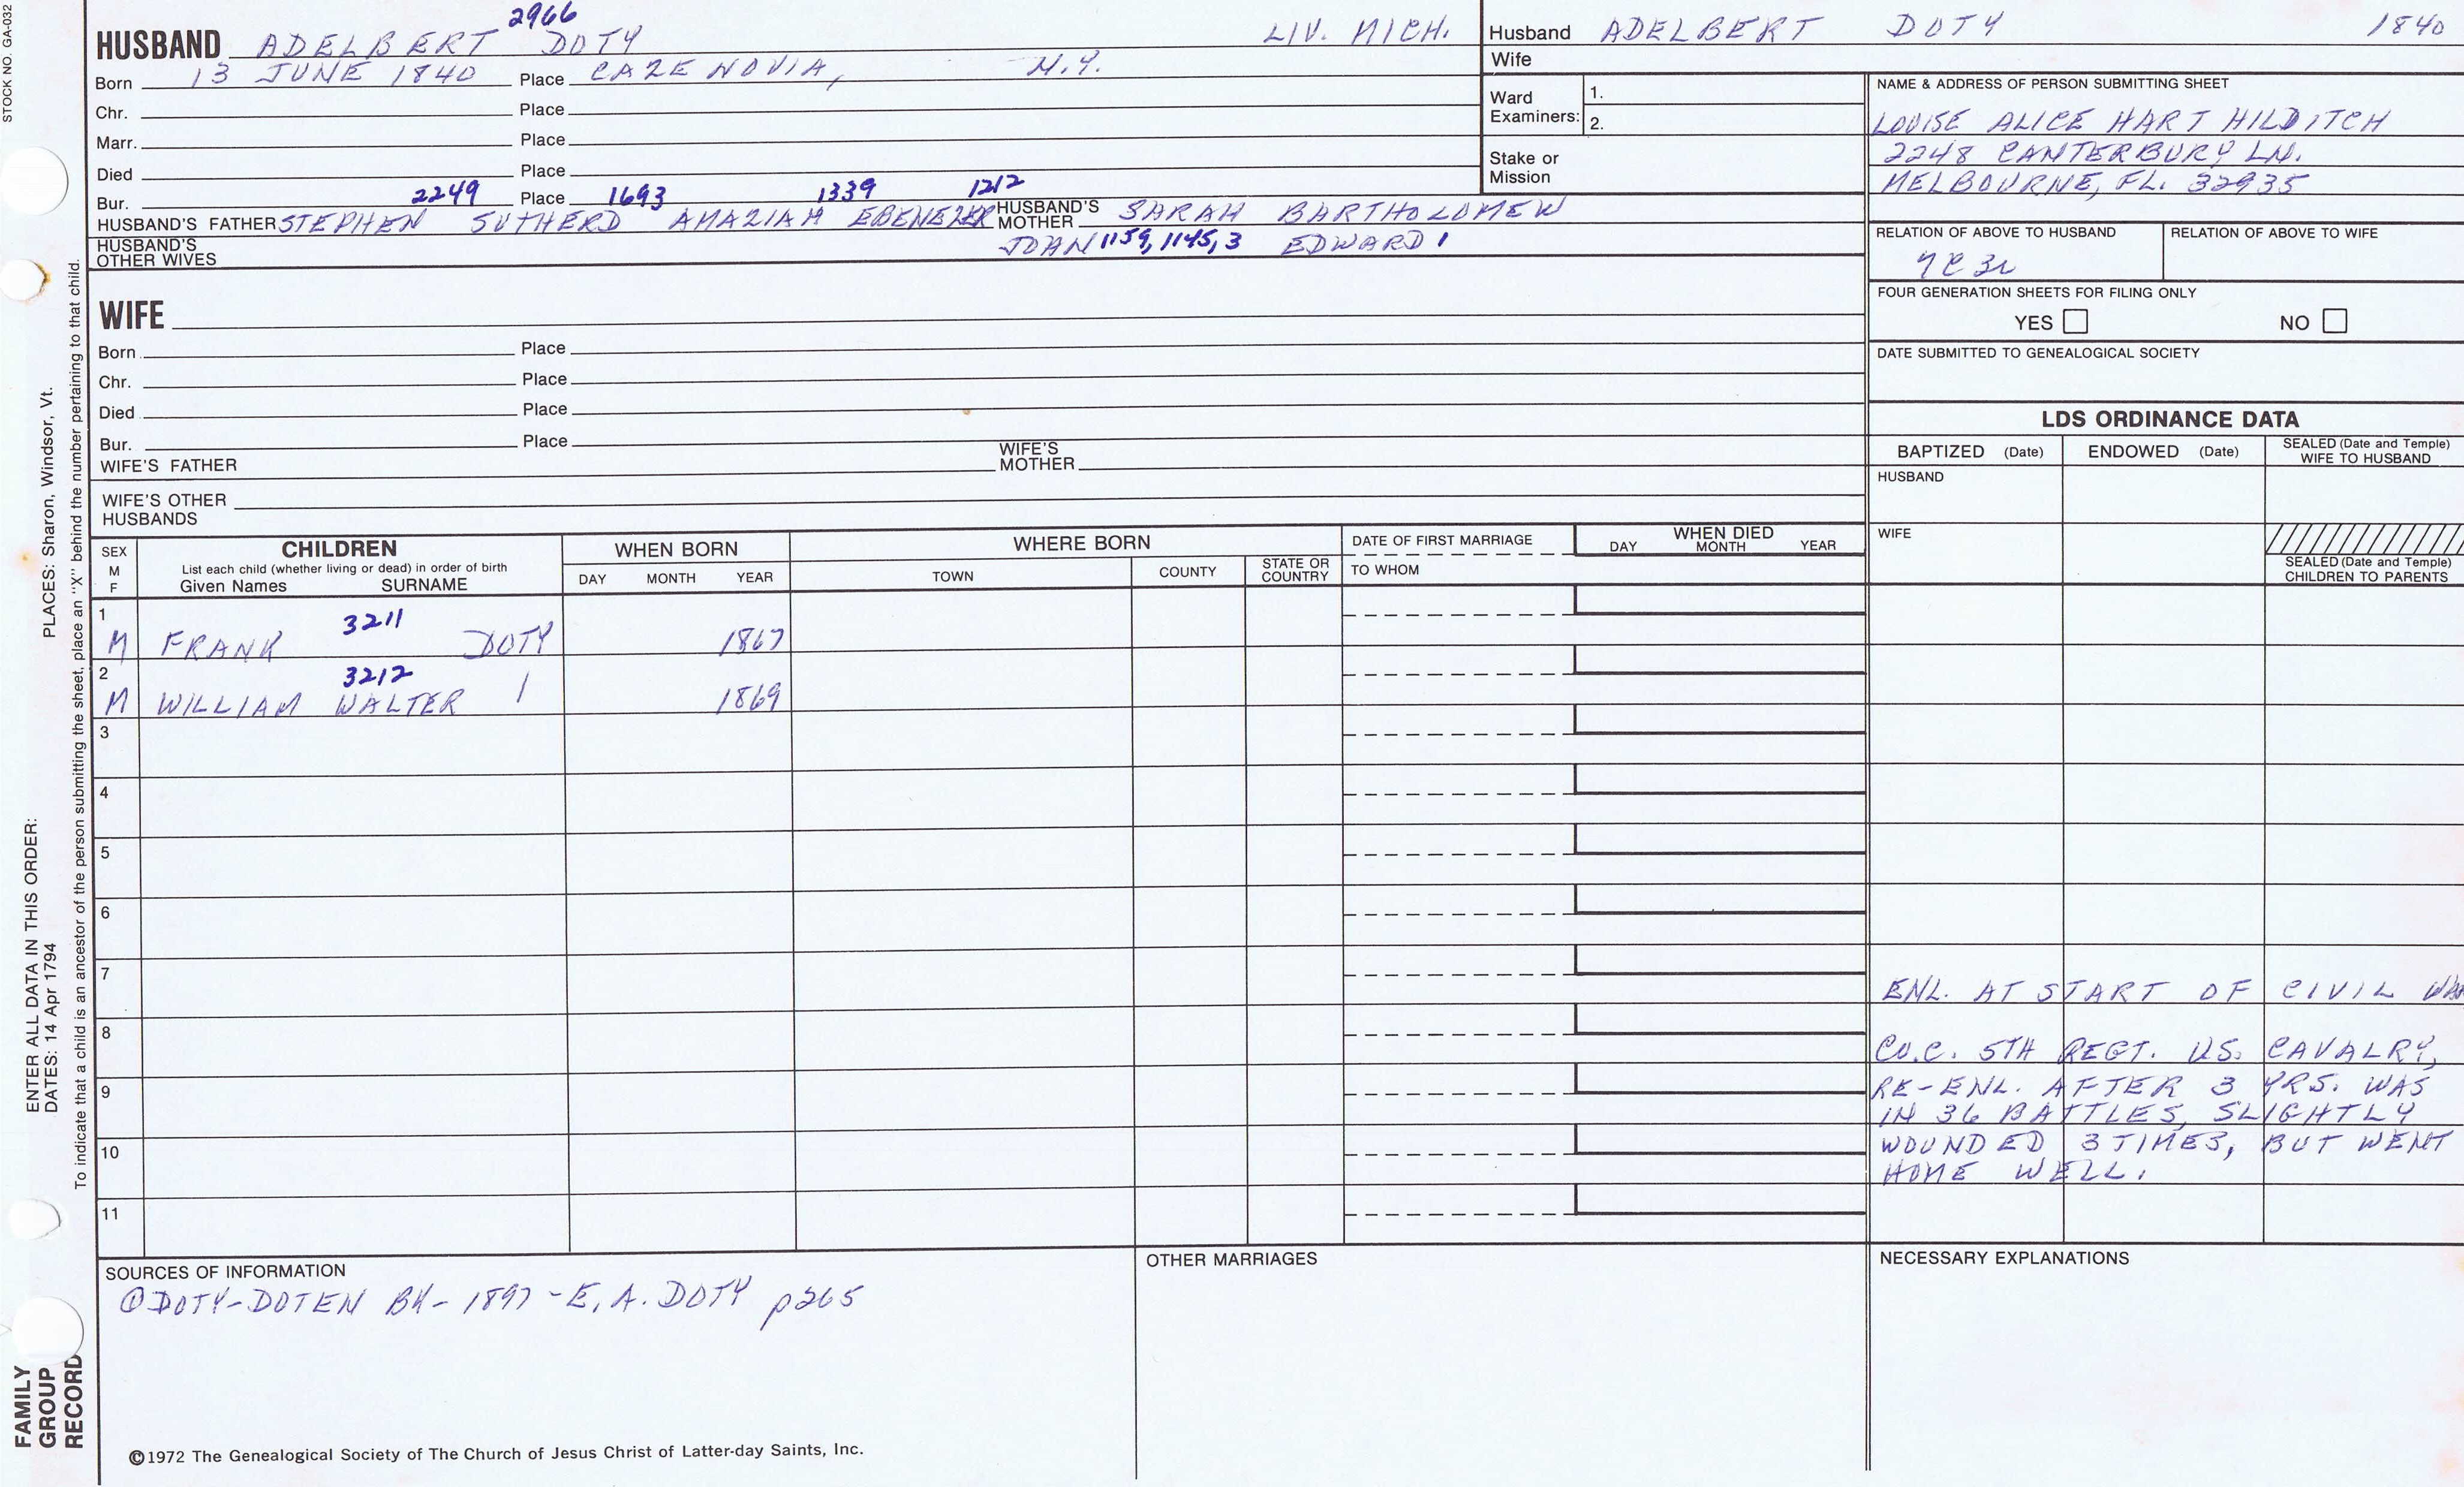 STOCK NO. GA-032
2966
HUSBAND ADELBERT DOTY LIV. MICH.
Born 13 JUNE 1840 Place CAZENOVIA, N.Y.
Chr. Place
Marr. Place
Died Place
Bur. 2249 Place 1693 1339 1212
HUSBAND'S FATHER STEPHEN SUTHERD AMAZIAH EBENEZER HUSBAND'S MOTHER SARAH BARTHOLOMEW
HUSBAND'S OTHER WIVES JOHN 1159, 1145, 3 EDWARD 1
Husband ADELBERT DOTY 1840
Wife
Ward Examiners: 1.
2.
Stake or Mission
NAME & ADDRESS OF PERSON SUBMITTING SHEET
LOUISE ALICE HART HILDITCH
2248 CANTERBURY LN.
MELBOURNE, FL. 32935
RELATION OF ABOVE TO HUSBAND RELATION OF ABOVE TO WIFE
7C 3r
FOUR GENERATION SHEETS FOR FILING ONLY
YES NO
DATE SUBMITTED TO GENEALOGICAL SOCIETY
WIFE
Born Place
Chr. Place
Died Place
Bur. Place
WIFE'S FATHER WIFE'S MOTHER
WIFE'S OTHER HUSBANDS
LDS ORDINANCE DATA
BAPTIZED (Date) ENDOWED (Date) SEALED (Date and Temple) WIFE TO HUSBAND
HUSBAND
WIFE
SEALED (Date and Temple) CHILDREN TO PARENTS
SEX M F
CHILDREN
List each child (whether living or dead) in order of birth
Given Names SURNAME
WHEN BORN
DAY MONTH YEAR
WHERE BORN
TOWN COUNTY STATE OR COUNTRY
DATE OF FIRST MARRIAGE
TO WHOM
WHEN DIED
DAY MONTH YEAR
1 3211
M FRANK DOTY 1867
2 3212
M WILLIAM WALTER 1869
3
4
5
6
7
8
9
10
11
ENL. AT START OF CIVIL WAR
CO.C. 5TH REGT. U.S. CAVALRY,
RE-ENL. AFTER 3 YRS. WAS
IN 36 BATTLES, SLIGHTLY
WOUNDED 3 TIMES, BUT WENT
HOME WELL.
SOURCES OF INFORMATION
① DOTY-DOTEN BK-1897-E.A. DOTY p265
OTHER MARRIAGES
NECESSARY EXPLANATIONS
©1972 The Genealogical Society of The Church of Jesus Christ of Latter-day Saints, Inc.
FAMILY
GROUP
RECORD
ENTER ALL DATA IN THIS ORDER:
DATES: 14 Apr 1794 PLACES: Sharon, Windsor, Vt.
To indicate that a child is an ancestor of the person submitting the sheet, place an "X" behind the number pertaining to that child.